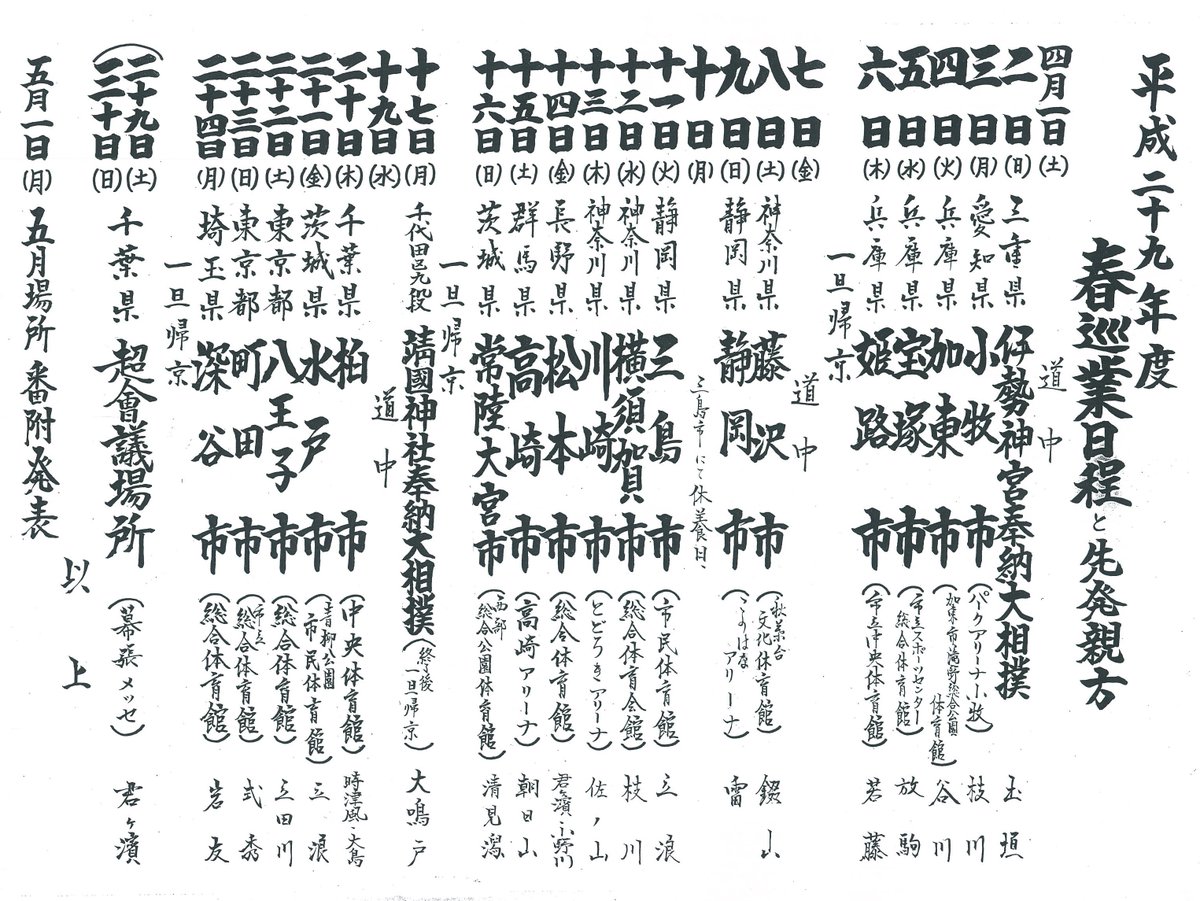 平成二十九年度
春巡業日程と先発親方
四月一日(土) 道中
二日(日) 三重県 伊勢神宮奉納大相撲 玉垣
三日(月) 愛知県 小牧市 (パークアリーナ小牧) 枝川
四日(火) 兵庫県 加東市 (加東市滝野総合公園体育館) 谷川
五日(水) 兵庫県 宝塚市 (市立スポーツセンター総合体育館) 放駒
六日(木) 兵庫県 姫路市 (市立中央体育館) 若藤
一旦帰京
七日(金) 道中
八日(土) 神奈川県 藤沢市 (秋葉台文化体育館) 錣山
九日(日) 静岡県 静岡市 (このはなアリーナ) 雷
十日(月) 三島市にて休養日、
十一日(火) 静岡県 三島市 (市民体育館) 立浪
十二日(水) 神奈川県 横須賀市 (総合体育会館) 枝川
十三日(木) 神奈川県 川崎市 (とどろきアリーナ) 佐ノ山
十四日(金) 長野県 松本市 (総合体育館) 君ヶ濱・小野川
十五日(土) 群馬県 高崎市 (高崎アリーナ) 朝日山
十六日(日) 茨城県 常陸大宮市 (西部総合公園体育館) 清見潟
一旦帰京
十七日(月) 千代田区九段 靖國神社奉納大相撲 (終了後一旦帰京) 大鳴戸
十九日(水) 道中
二十日(木) 千葉県 柏市 (中央体育館) 時津風・大島
二十一日(金) 茨城県 水戸市 (青柳公園市民体育館) 立浪
二十二日(土) 東京都 八王子市 (総合体育館) 三田川
二十三日(日) 東京都 町田市 (市立総合体育館) 式秀
二十四日(月) 埼玉県 深谷市 (総合体育館) 岩友
一旦帰京
(二十九日(土)
三十日(日) 千葉県 超會議場所 (幕張メッセ) 君ヶ濱
五月一日(月) 五月場所番附発表
以上